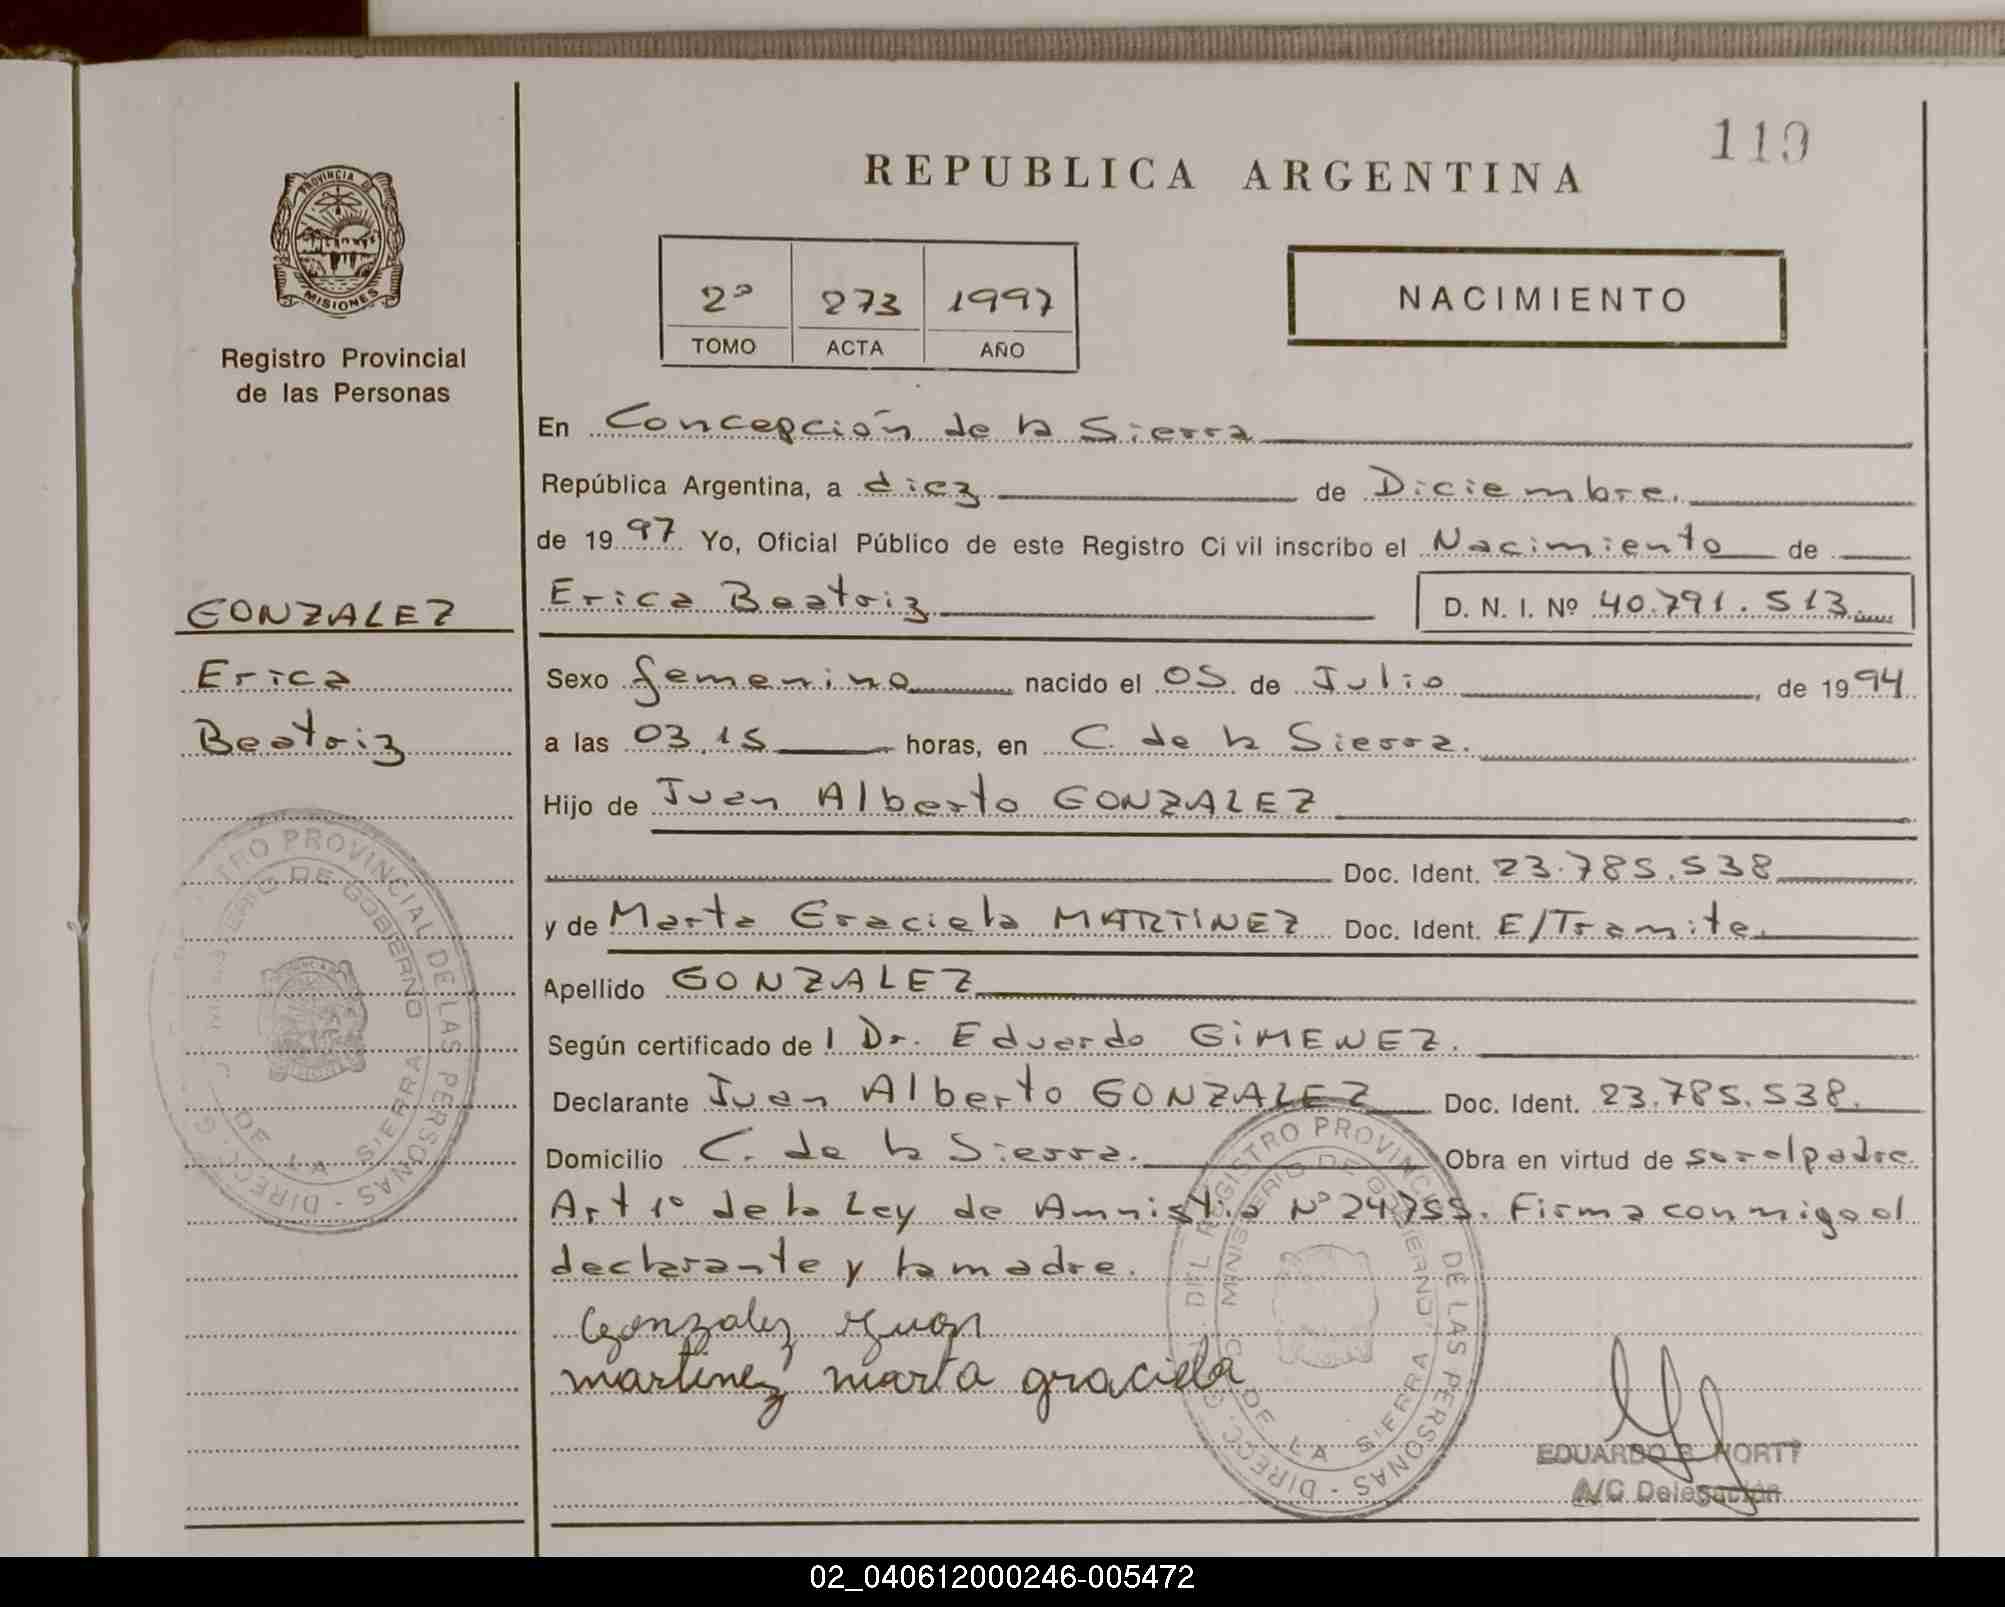 119
REPUBLICA ARGENTINA
PROVINCIA DE
MISIONES
Registro Provincial
de las Personas
2º 273 1997
TOMO ACTA AÑO
NACIMIENTO
En Concepción de la Sierra
República Argentina, a diez de Diciembre.
de 1997 Yo, Oficial Público de este Registro Civil inscribo el Nacimiento de
Erica Beatriz D. N. I. Nº 40.791.513.
GONZALEZ
Erica
Beatriz
Sexo femenino nacido el 05 de Julio, de 1994
a las 03.15 horas, en C. de la Sierra.
Hijo de Juan Alberto GONZALEZ
Doc. Ident. 23.785.538
y de Marta Graciela MARTINEZ Doc. Ident. E/Tramite.
Apellido GONZALEZ
Según certificado de l Dr. Eduardo GIMENEZ.
Declarante Juan Alberto GONZALEZ Doc. Ident. 23.785.538.
Domicilio C. de la Sierra. Obra en virtud de ser el padre.
Art 1º de la Ley de Amnistia Nº 24755. Firma conmigo el
declarante y la madre.
Gonzalez Juan
martinez marta graciela
PROVINCIAL DE LAS PERSONAS - DIRECC.
DE GOBIERNO
DE LA SIERRA
DEL REGISTRO PROVINCIAL DE LAS PERSONAS - DIRECC.
MINISTERIO DE GOBIERNO
DE LA SIERRA
EDUARDO
A/C Delegación
02_040612000246-005472